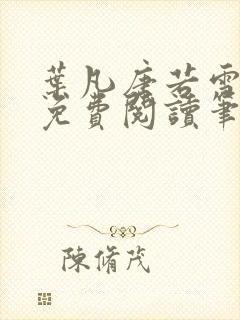 葉凡唐若雪
免費閱讀筆
陳脩茂